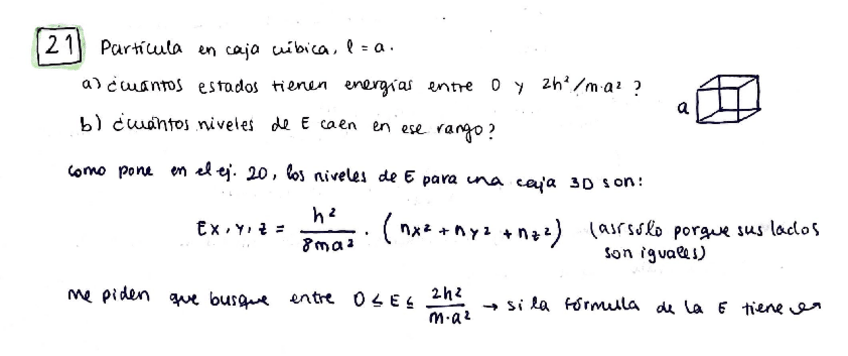 21 Partícula en caja cúbica, l = a.
a) ¿cuántos estados tienen energías entre 0 y 2h²/m·a² ?
b) ¿cuántos niveles de E caen en ese rango?
a
como pone en el ej. 20, los niveles de E para una caja 3D son:
Ex,y,z = h²/8ma² · (nx² + ny² + nz²) (así sólo porque sus lados
son iguales)
me piden que busque entre 0 ≤ E ≤ 2h²/m·a² → si la fórmula de la E tiene